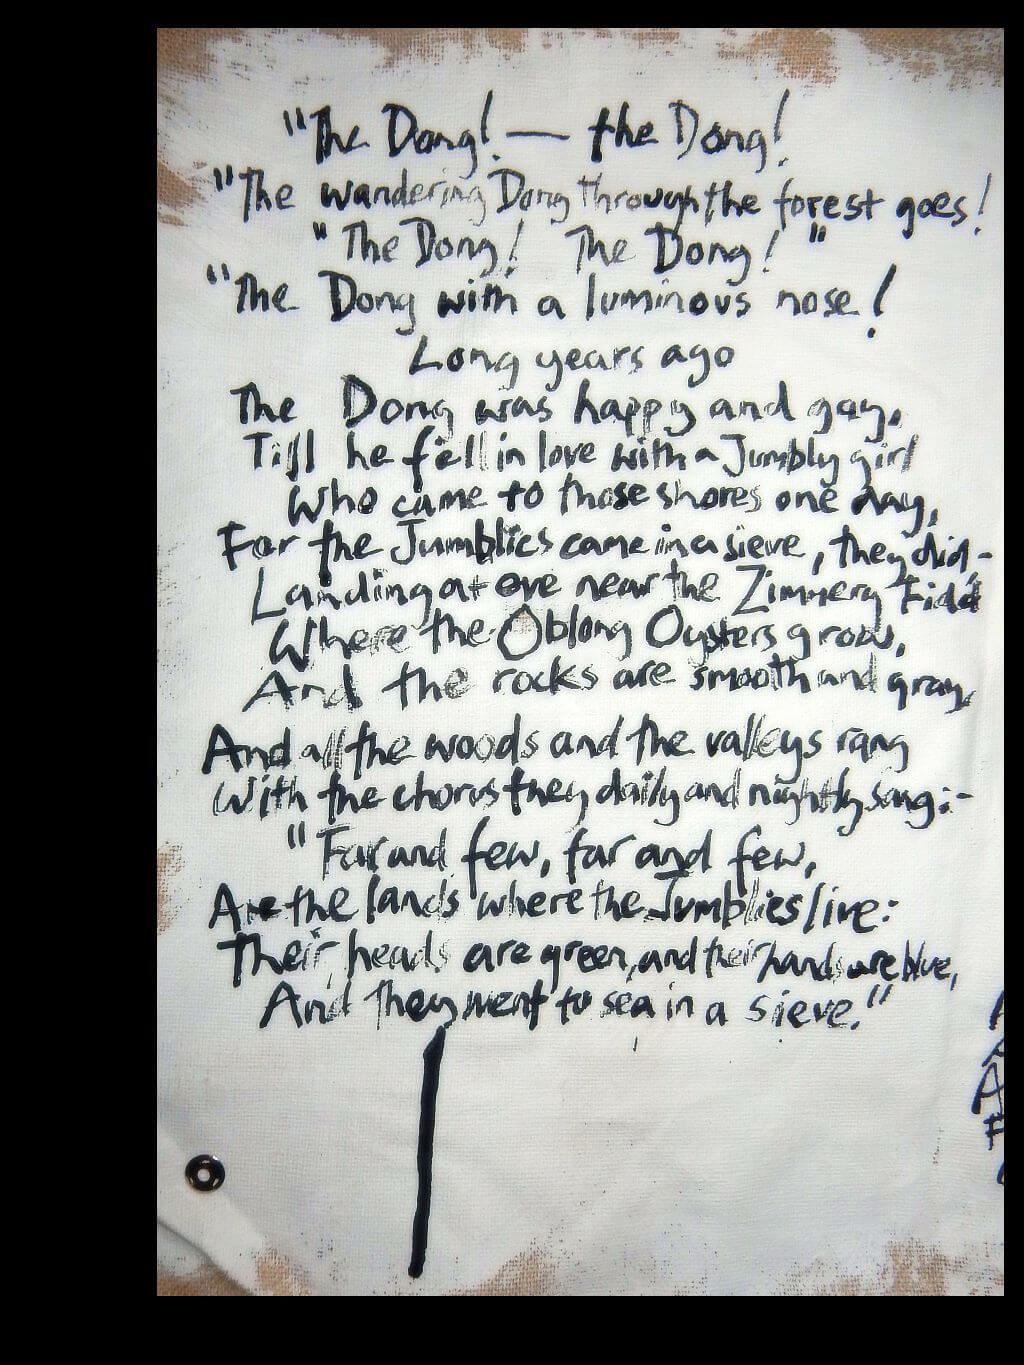 "The Dong! — the Dong!
"The wandering Dong through the forest goes!
"The Dong! The Dong!"
"The Dong with a luminous nose!
Long years ago
The Dong was happy and gay,
Till he fell in love with a Jumbly girl
Who came to those shores one day,
For the Jumblies came in a sieve, they did,-
Landing at eve near the Zimmery Fidd
Where the Oblong Oysters grow,
And the rocks are smooth and gray,
And all the woods and the valleys rang
With the chorus they daily and nightly sang:-
"Far and few, far and few,
Are the lands where the Jumblies live:
Their heads are green, and their hands are blue,
And they went to sea in a sieve."